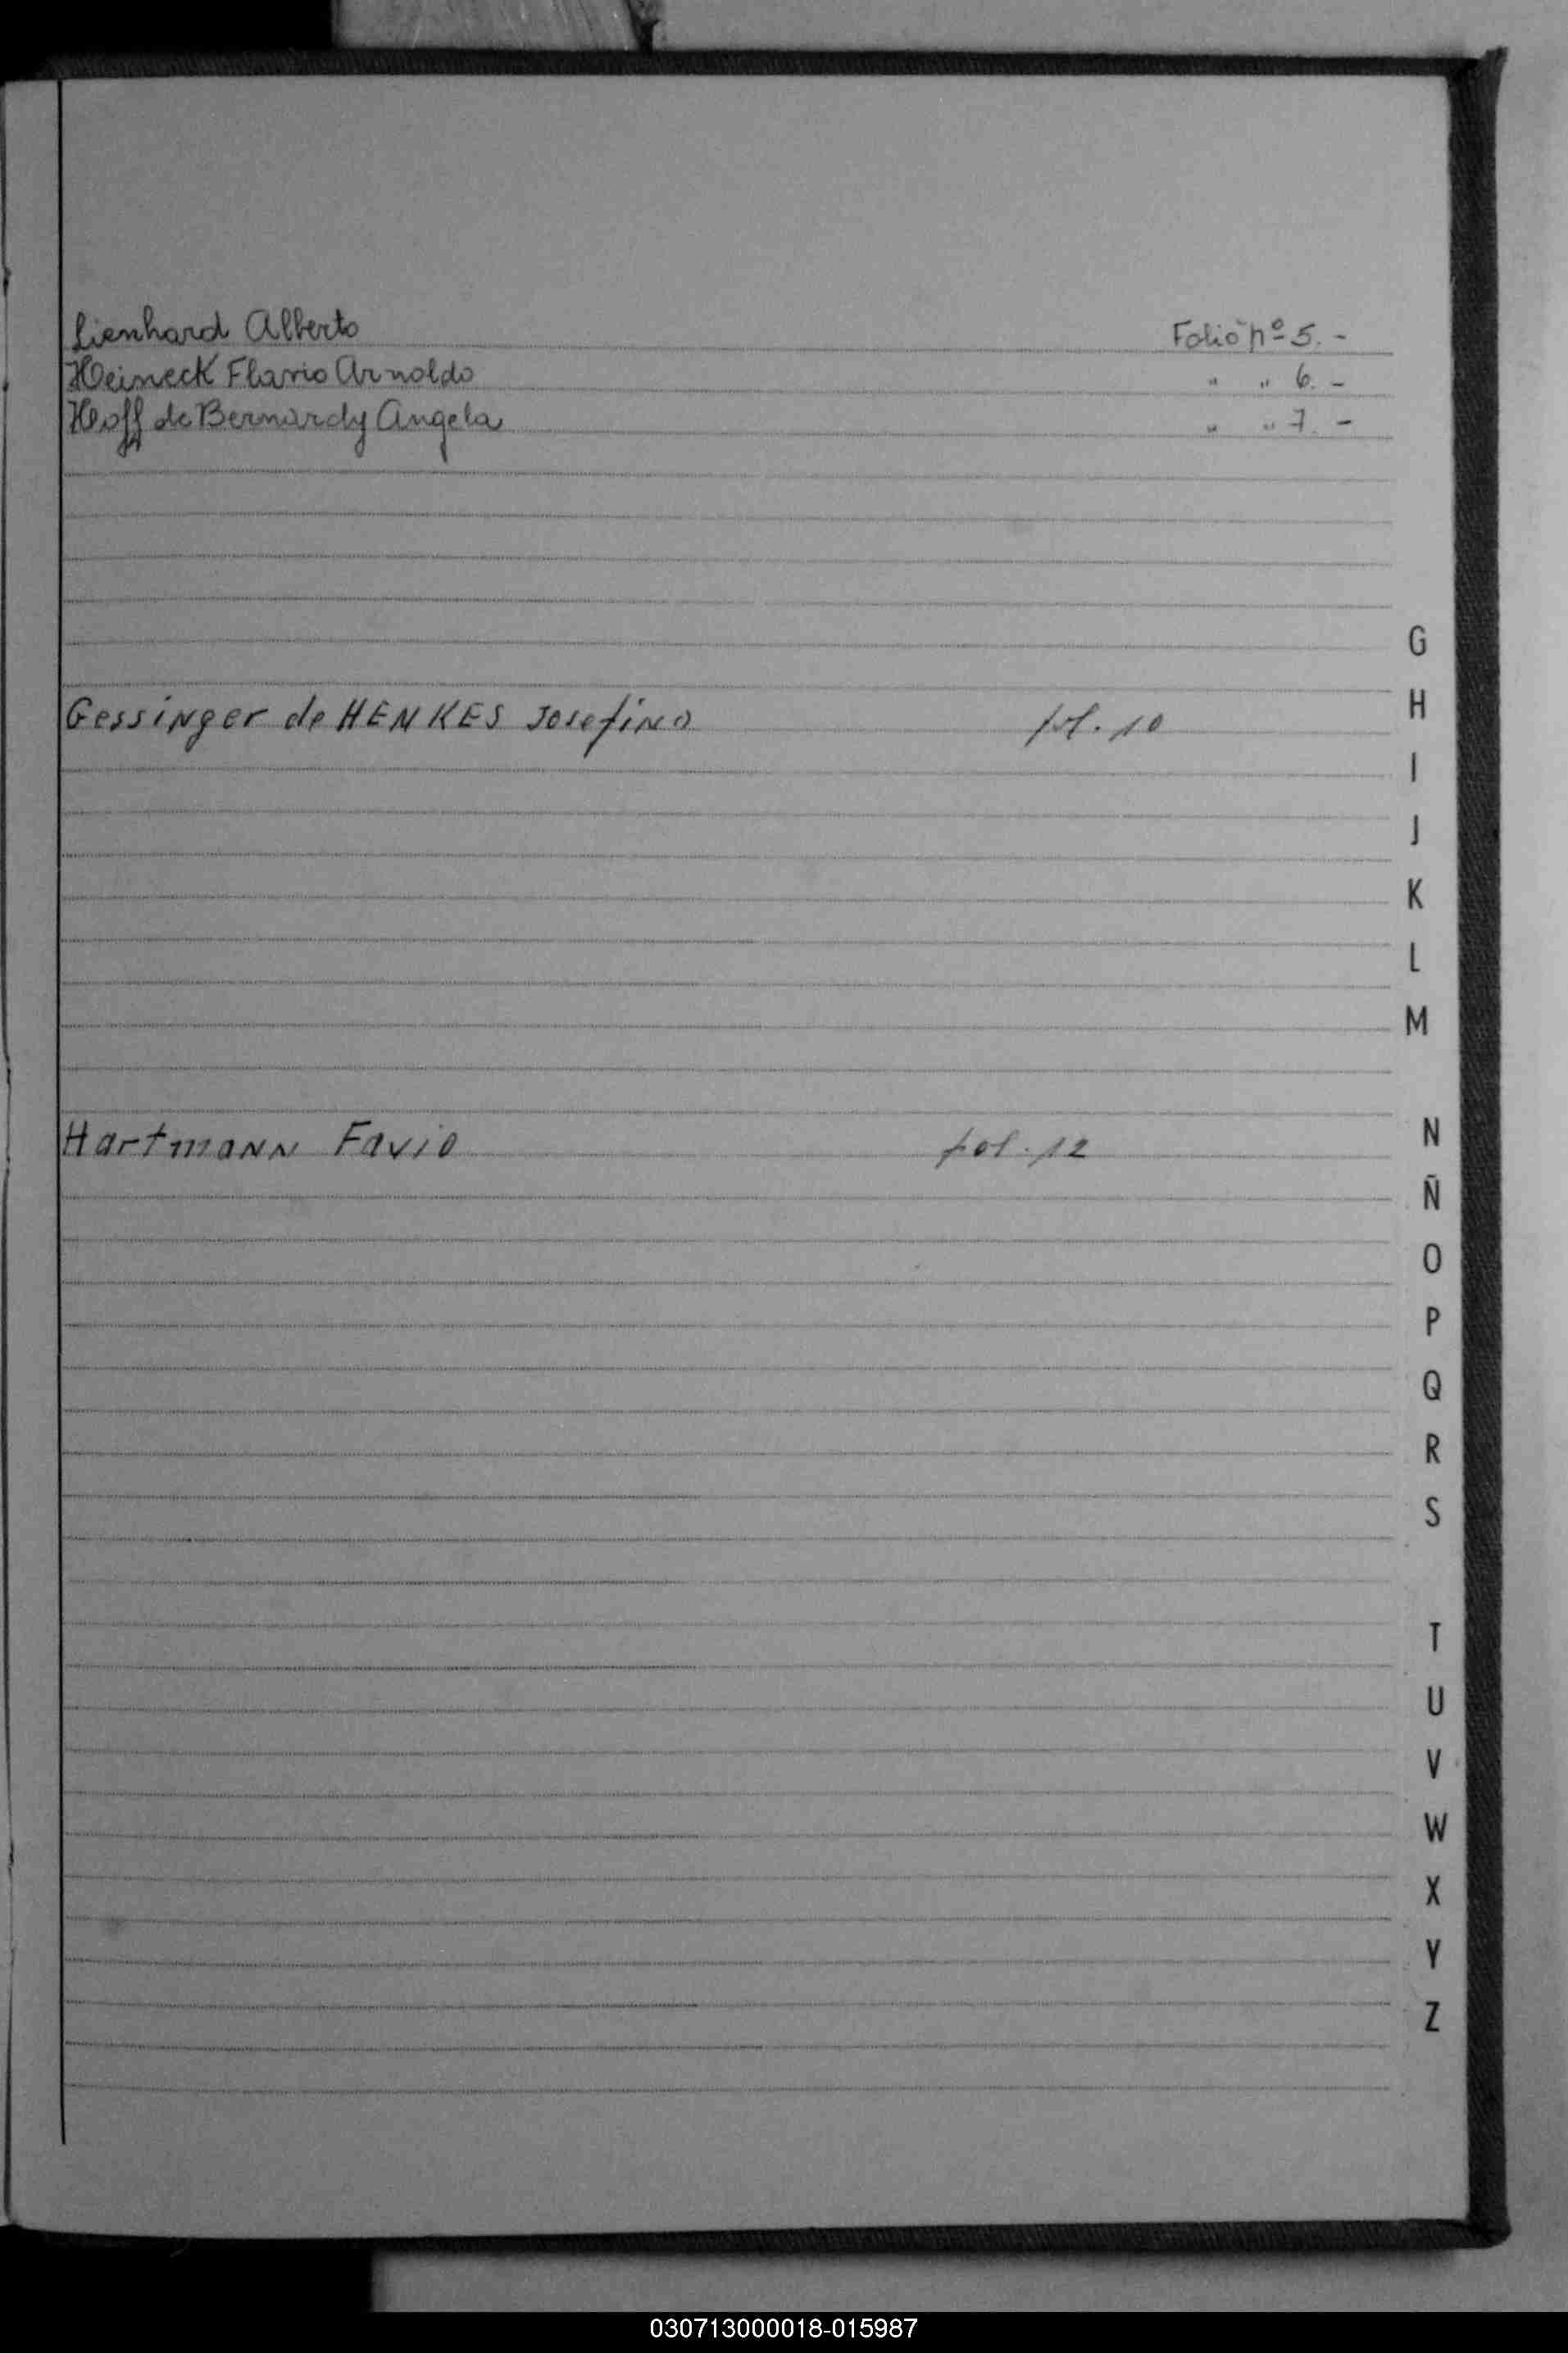 Lienhard Alberto Folio nº 5. -
Heineck Flavio Arnoldo " " 6. -
Hoff de Bernardy Angela " " 7. -
G
Gessinger de HENKES Josefina fol. 10
H
I
J
K
L
M
Hartmann Favio fol. 12
N
Ñ
O
P
Q
R
S
T
U
V
W
X
Y
Z
030713000018-015987